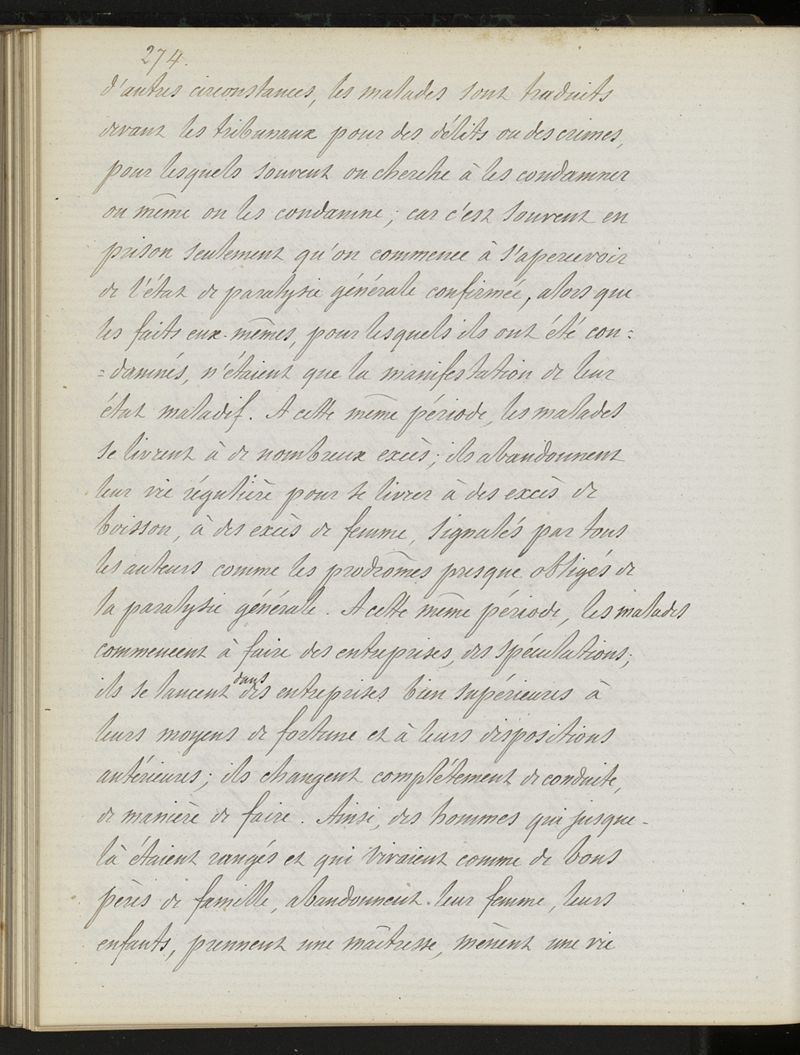 274.
d'autres circonstances, les malades sont traduits
devant les tribunaux pour des délits ou des crimes,
pour lesquels souvent on cherche à les condamner
ou même on les condamne ; car c'est souvent en
prison seulement qu'on commence à s'apercevoir
de l'état de paralysie générale confirmée, alors que
les faits eux-mêmes, pour lesquels ils ont été con=
=damnés, n'étaient que la manifestation de leur
état maladif. A cette même période, les malades
se livrent à de nombreux excès ; ils abandonnent
leur vie régulière pour se livrer à des excès de
boisson, à des excès de femme, signalés par tous
les auteurs comme les prodrômes presque obligés de
la paralysie générale. A cette même période, les malades
commencent à faire des entreprises, des spéculations ;
ils se lancent dans des entreprises bien supérieures à
leurs moyens de fortune et à leurs dispositions
antérieures ; ils changent complétement de conduite,
de manière de faire. Ainsi, des hommes qui jusque-
là étaient rangés et qui vivaient comme de bons
pères de famille, abandonnent leur femme, leurs
enfants, prennent une maîtresse, mènent une vie